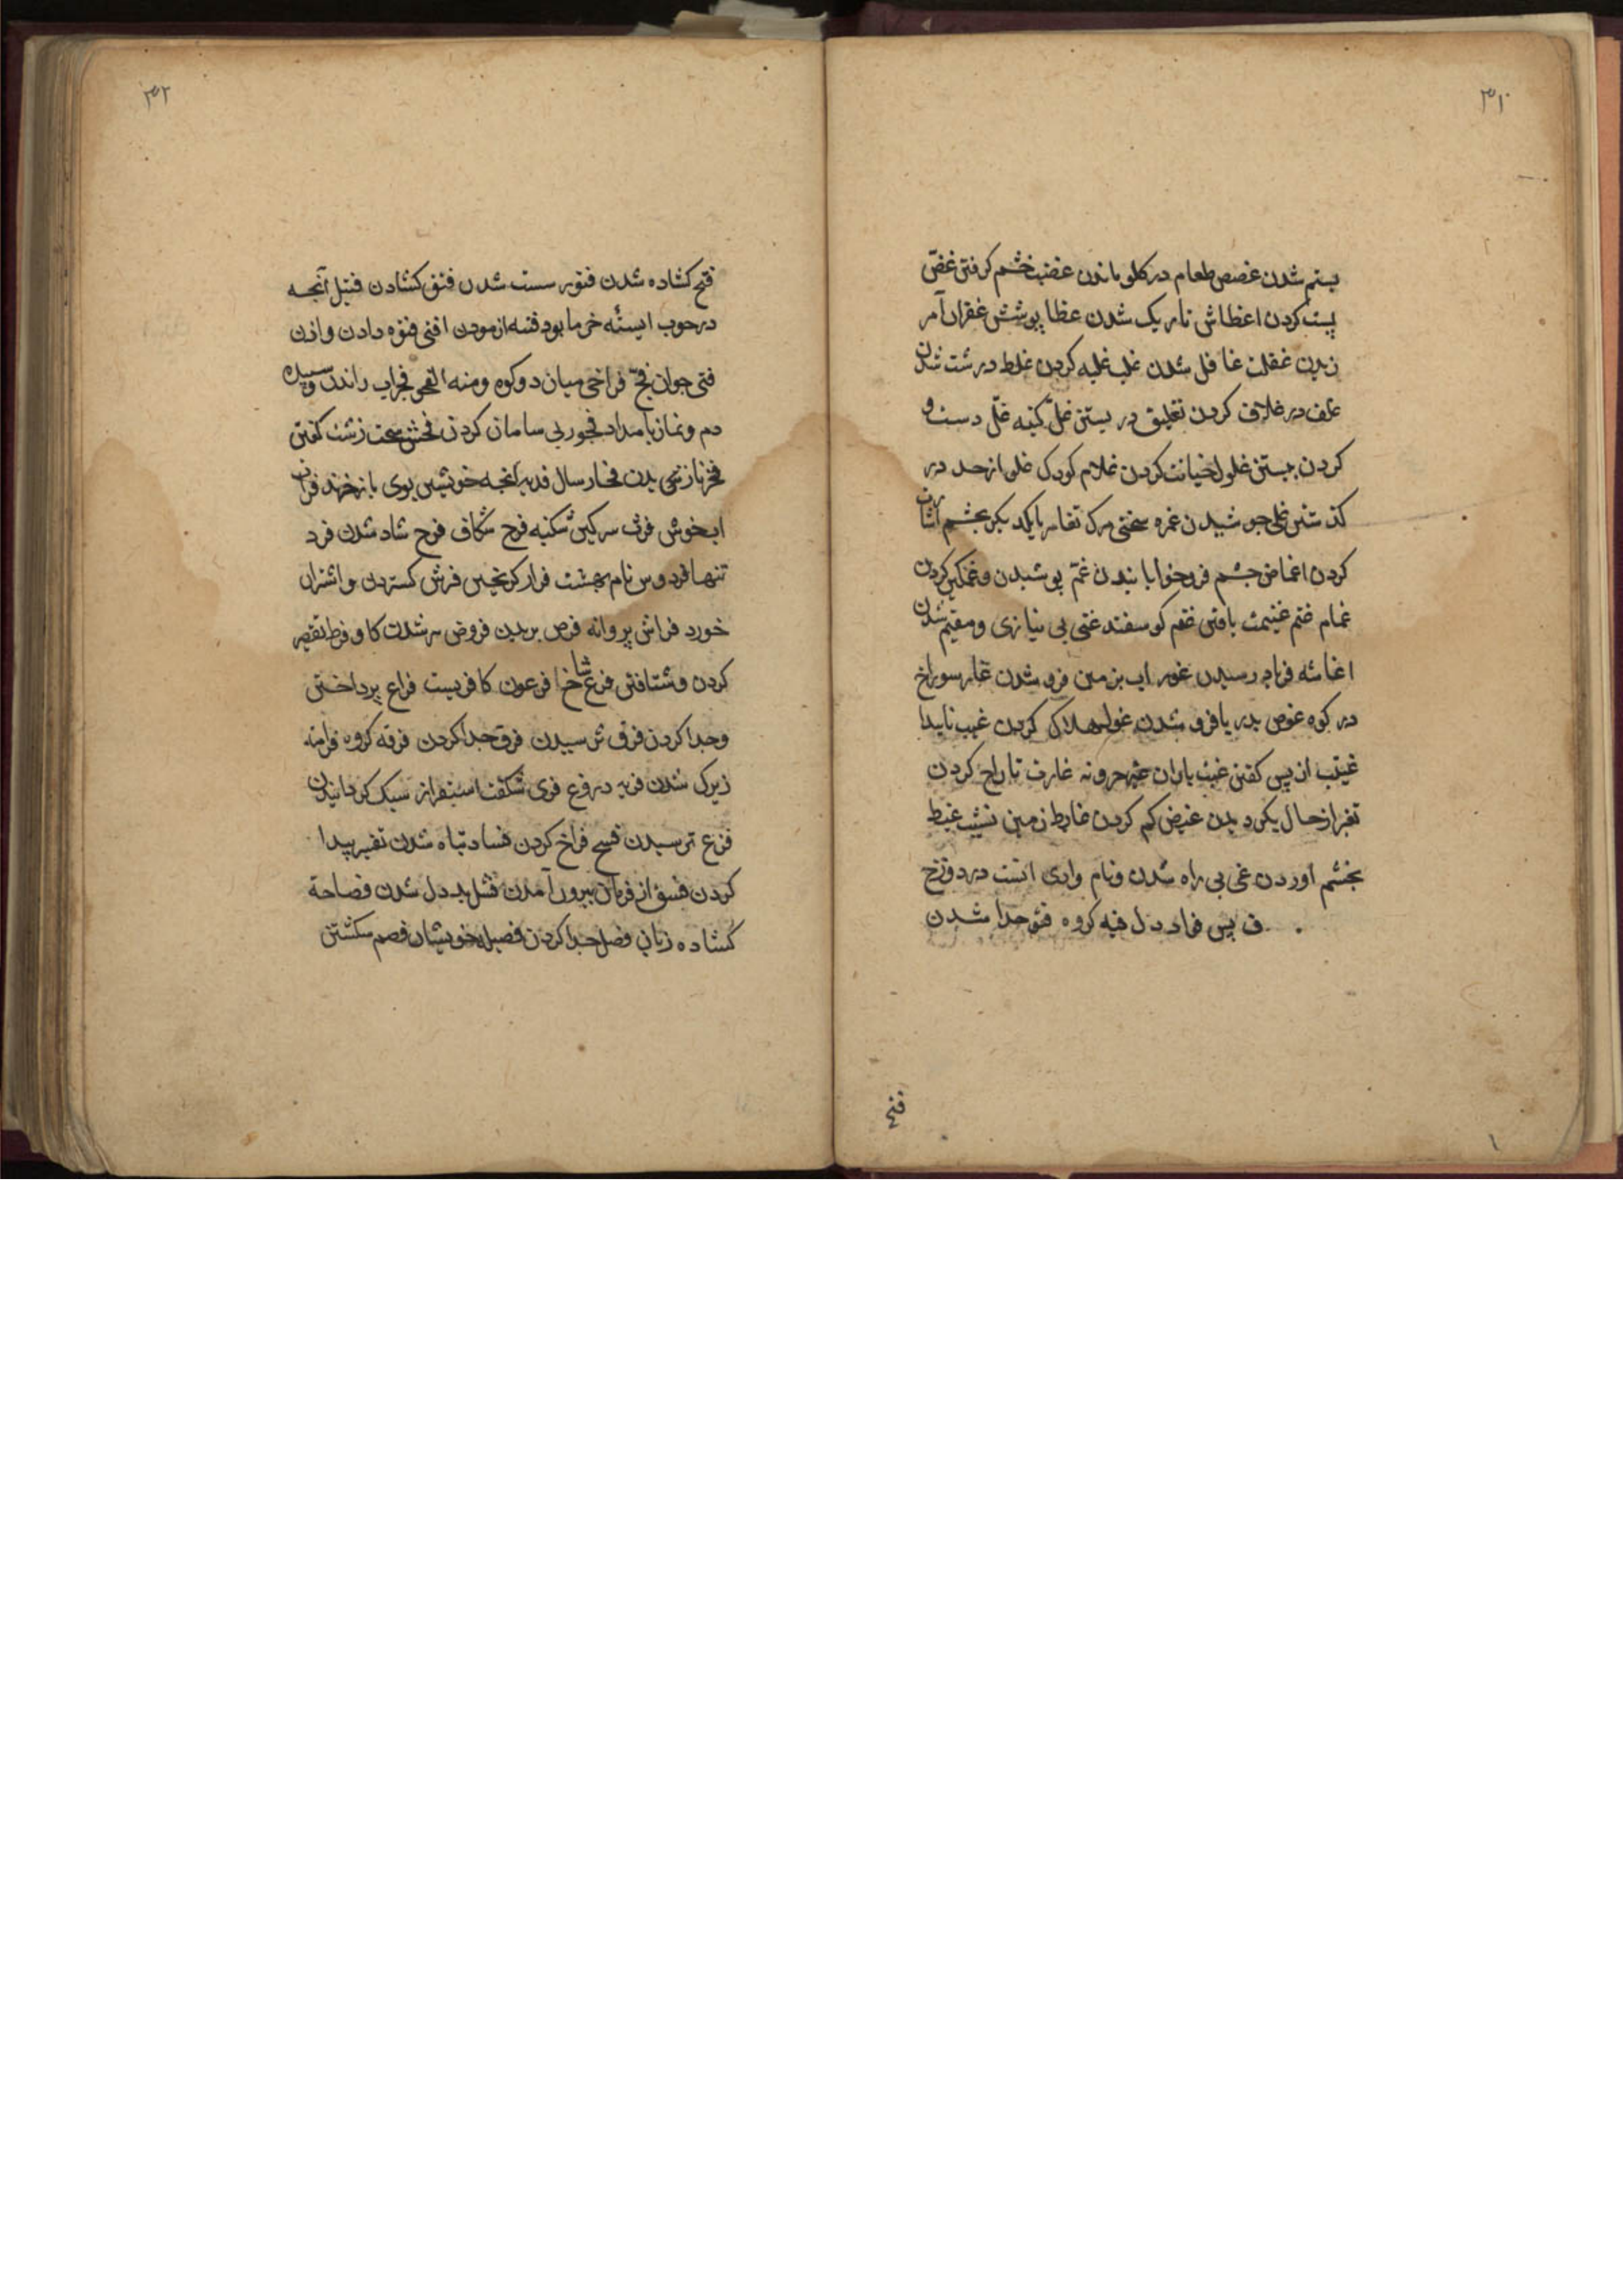 ۳۱
بستم شدن غصص طعام در کلو ماندن غضب خشم کرفتن غضّ
پست کردن اغطاش تاریک شدن غطا پوشش غفران آمر
زیدن غفلت غافل شدن غلب غلبه کردن غلظ درشت شدن
غلف در غلاف کردن تغلیق در بستن غلّ کینه غلّ دست و
کردن بستن غلول خیانت کردن غلام کودک غلو از حد در
کذشتن غلی جوشیدن غمره سختی مرک تغامز بایکدیکر بچشم اشارت
کردن اغماض چشم فروخوابانیدن غمّ پوشیدن و غمکین کردن
غمام غنم غنیمت یافتن غنم کوسفند غنی بی نیازی و مقیم شدن
اغاثه فریاد رسیدن غور اب بزمین فرو شدن غار سوراخ
در کوه غوص بدریا فرو شدن غول هلاک کردن غیب ناپیدا
غیبت از پس کفتن غیث باران غارت تاراج کردن
تغیر از حال بکردیدن غیض کم کردن غایط زمین نشیب غیظ
بخشم اوردن غی بی راه شدن و نام وادی است در دوزخ
ف پس فاد دل فیه کروه فتو جدا شدن
فتح
۳۲
فتح کشاده شدن فتور سست شدن فتق کشادن فتیل آنچه
در جوب ایسته خرما بود فتنه ازمودن افتی فتوه دادن واذن
فتی جوان فجّ فراخی میان دو کوه و منه الفجو فجر اب راندن و سپیده
دم و نماز بامداد فجور بی سامان کردن فحش سخت زشت کفتن
فخر نازیدن فخار سال فدیه انچه خویشتن بوی باز خرند فرات
اب خوش فرث سرکین شکنبه فرج شکاف فرح شاد شدن فرد
تنها فردوس نام بهشت فرار کریختن فرش کستردن و اشتران
خورد فراش پروانه فرض بریدن فروض مه شدن کاو فرط تقصیر
کردن و شتافتن فرع شاخ فرعون کافریست فراغ پرداختن
وجدا کردن فرق ترسیدن فرق جدا کردن فرقه کروه فراهة
زیرک شدن فریه دروغ فری شکفت استفزاز سبک کردانیدن
فزع ترسیدن فسح فراخ کردن فساد تباه شدن تفسیر پیدا
کردن فسق از فرمان بیرون آمدن فشل بد دل شدن فصاحة
کشاده زبان فصل جدا کردن فصیله خویشان فصم سکشتن